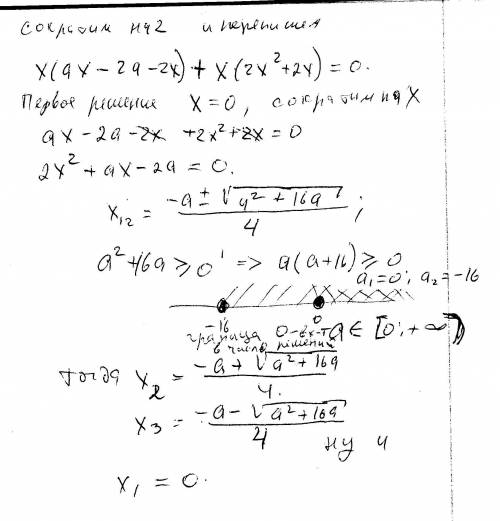 сократим на 2 и перепишем
x(ax - 2a - 2x) + x(2x² + 2x) = 0.
Первое решение x = 0, сократим на x
ax - 2a - 2x + 2x² + 2x = 0
2x² + ax - 2a = 0.
x₁₂ = (-a ± √(a² + 16a)) / 4 ;
a² + 16a ≥ 0 => a(a + 16) ≥ 0
a₁ = 0; a₂ = -16
-16 0
граница 0 a ∈ [0; +∞)
в число решений
тогда x₂ = (-a + √(a² + 16a)) / 4.
x₃ = (-a - √(a² + 16a)) / 4
ну и
x₁ = 0.